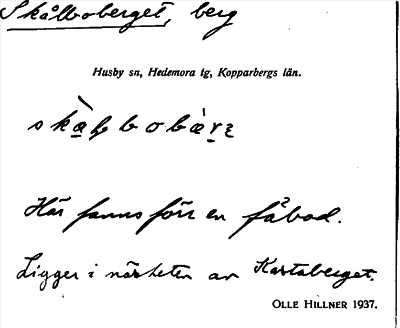 Skålboberget, berg
Husby sn, Hedemora tg, Kopparbergs län.
Här fanns förr en fäbod.
Ligger i närheten av Kartaberget.
OLLE HILLNER 1937.